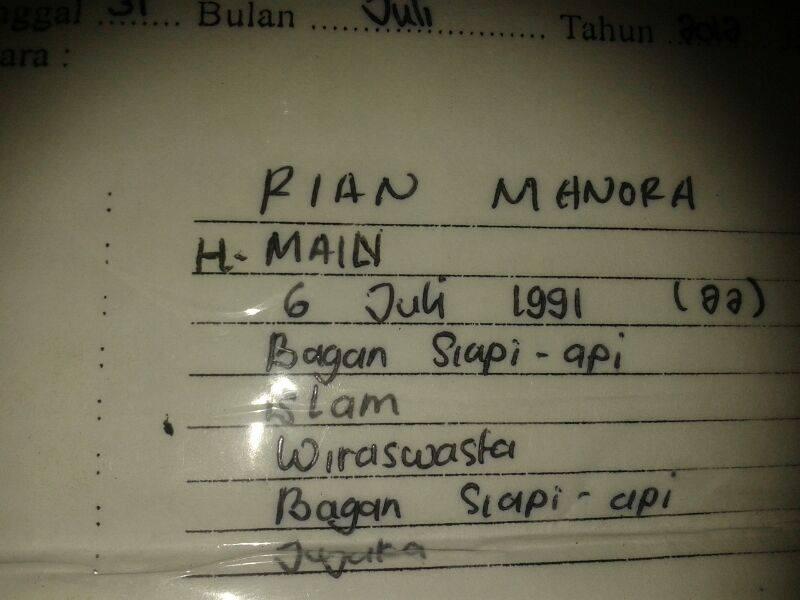 nggal 31 Bulan Juli Tahun 2013
ara :
: RIAN MANORA
: H. MAIN
: 6 Juli 1991 (22)
: Bagan Siapi-api
: Islam
: Wiraswasta
: Bagan Siapi-api
: Jejaka